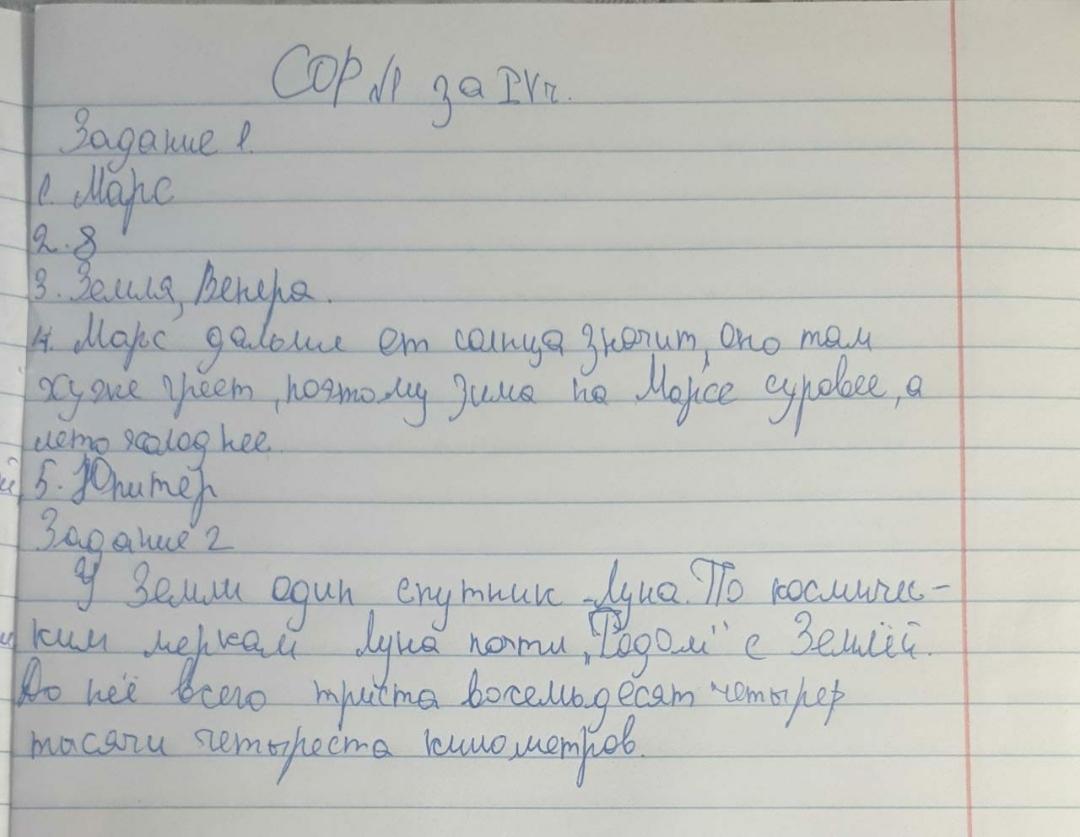 СОР №1 за IVч.
Задание 1.
1. Марс
2. 8
3. Земля, Венера.
4. Марс дальше от солнца значит, оно там
хуже греет, поэтому зима на Марсе суровее, а
лето холоднее.
5. Юпитер
Задание 2
У Земли один спутник - Луна. По космичес-
ким меркам Луна почти „Рядом" с Землёй.
До неё всего триста восемьдесят четырер
тысячи четыреста километров.